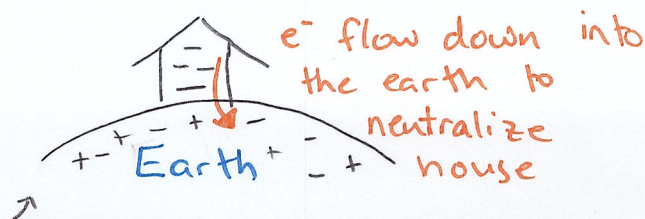 e⁻ flow down into
the earth to
neutralize
house
Earth